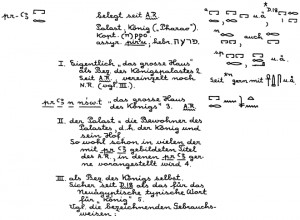 pr-ꜥꜣ belegt seit A.R.
Palast, König („Pharao“).
Kopt. (π)ρρο.
assyr. pirʾu, hebr. פרעה.
D.18
u.ä.
auch
u.ä.
seit
gern mit u.ä.
I. Eigentlich „das grosse Haus“
als Bez. des Königspalastes 2.
Seit A.R., vereinzelt noch
N.R. (vgl. III.).
pr ꜥꜣ n nśwt „das grosse Haus
des Königs“ 3. A.R.
II. der Palast = die Bewohner des
Palastes, d.h. der König und
sein Hof.
So wohl schon in vielen der
mit pr ꜥꜣ gebildeten Titel
des A.R., in denen pr ꜥꜣ ger-
ne vorangestellt wird 4.
III. als Bez. des Königs selbst.
Sicher seit D.18 als das für das
Neuägyptische typische Wort
für „König“ 5.
Vgl. die bezeichnenden Gebrauchs-
weisen: